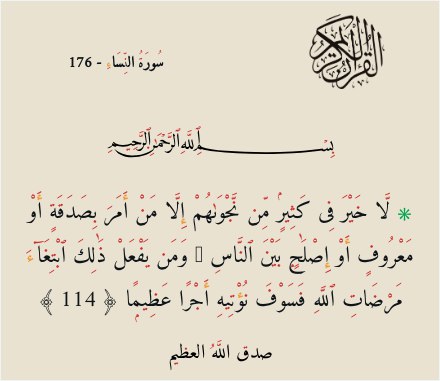 القرآن الكريم
سُورَةُ النِّسَاءِ - 176
بِسْمِ ٱللَّهِ ٱلرَّحْمَٰنِ ٱلرَّحِيمِ
لَّا خَيْرَ فِى كَثِيرٍ مِّن نَّجْوَىٰهُمْ إِلَّا مَنْ أَمَرَ بِصَدَقَةٍ أَوْ
مَعْرُوفٍ أَوْ إِصْلَٰحٍۭ بَيْنَ ٱلنَّاسِ ۚ وَمَن يَفْعَلْ ذَٰلِكَ ٱبْتِغَآءَ
مَرْضَاتِ ٱللَّهِ فَسَوْفَ نُؤْتِيهِ أَجْرًا عَظِيمًا ﴿ 114 ﴾
صدق اللَّهُ العظيم